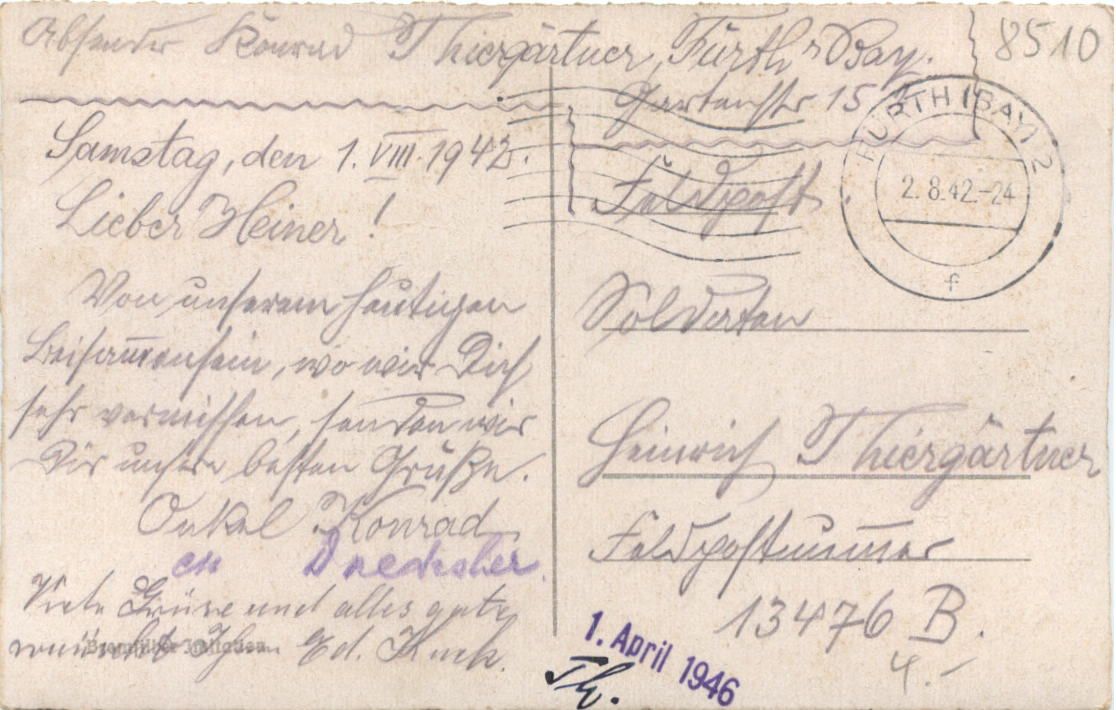 Absender Konrad Thiergärtner, Fürth i. Bay.
Gartenstr 15
8510
FÜRTH (BAY) 2
2.8.42.-24
f
Samstag, den 1. VIII. 1942.
Lieber Heiner!
Von unserem heutigen
Beisammensein, wo wir Dich
sehr vermissen, senden wir
Dir unsere besten Grüße.
Onkel Konrad
Viele Grüse und alles gute
wünscht Ihnen Ed.
Feldpost
Soldaten
Heinrich Thiergärtner
Feldpostnummer
13476 B.
4.-
1. April 1946
Th.